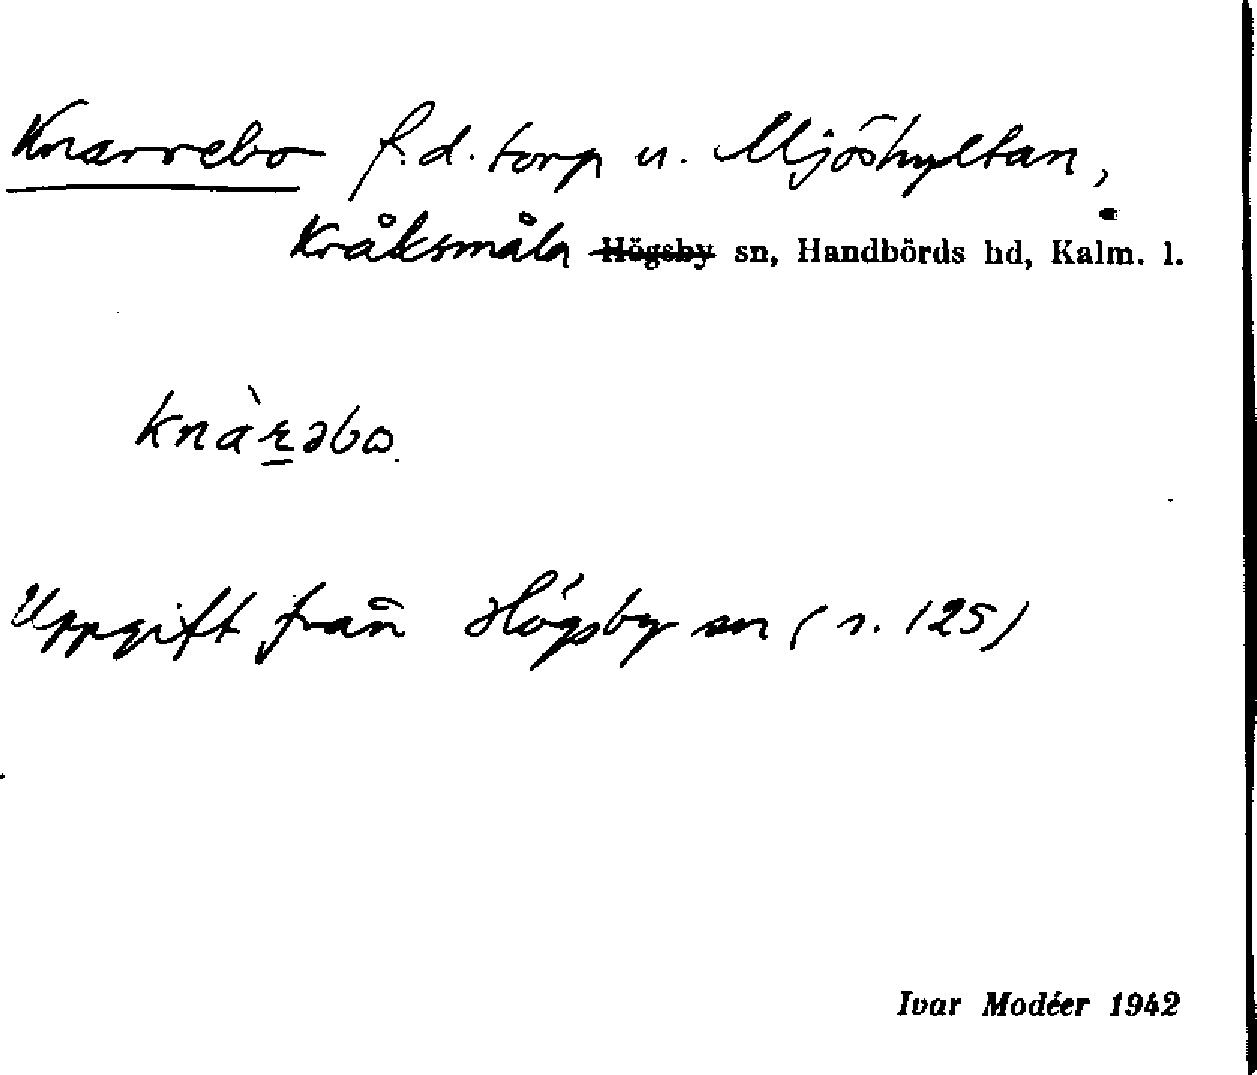 Knarrebo f.d. torp u. Mjöshyltan,
Kråksmåla Högsby sn, Handbörds hd, Kalm. l.
knàrəbo
Uppgift från Högsby sn (s. 125)
Ivar Modéer 1942